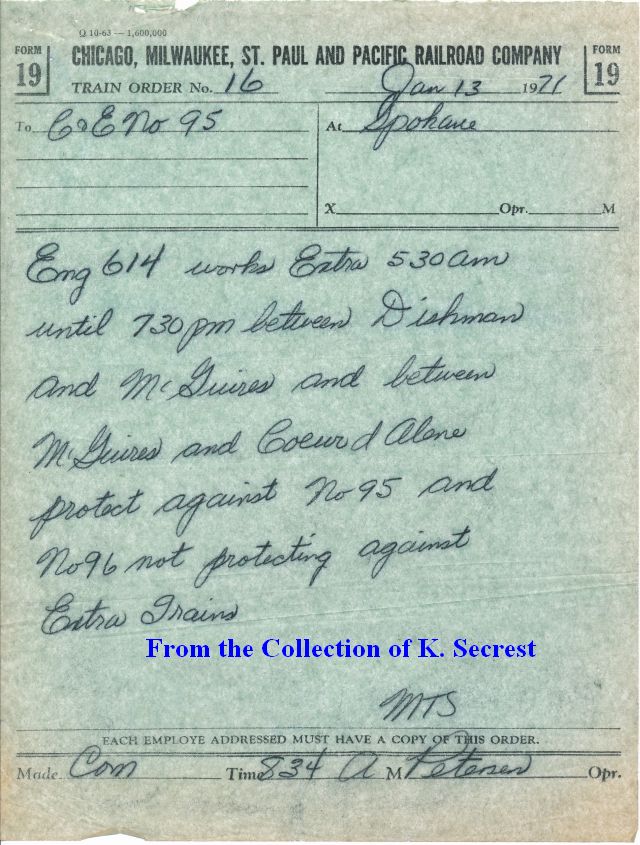 Q 10-63 — 1,600,000
FORM 19
CHICAGO, MILWAUKEE, ST. PAUL AND PACIFIC RAILROAD COMPANY
FORM 19
TRAIN ORDER No. 16 Jan 13 1971
To C&E No 95 At Spokane
X Opr. M
Eng 614 works Extra 530am
until 730pm between Dishman
and McGuires and between
McGuires and Coeur d Alene
protect against No 95 and
No 96 not protecting against
Extra Trains
From the Collection of K. Secrest
MTS
EACH EMPLOYE ADDRESSED MUST HAVE A COPY OF THIS ORDER.
Made Com Time 834 A M Petersen Opr.